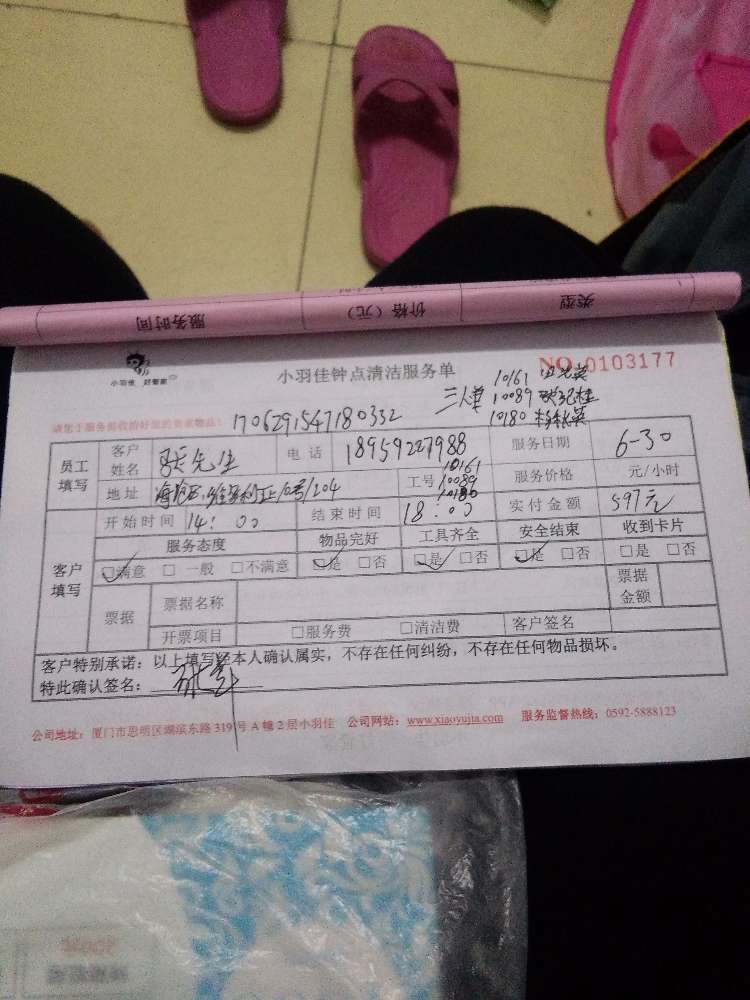 类型 价格（元） 服务时间
小羽佳 好管家 小羽佳钟点清洁服务单 NO.0103177
三人单 10161
10089
10180
请您于服务前收拾好您的贵重物品： 1706291547180332
员工填写 客户姓名 张先生 电话 18959227988 服务日期 6-30
地址 10号/204 工号 10161 10089 10180 服务价格 元/小时
开始时间 14：00 结束时间 18：00 实付金额 597元
客户填写 服务态度 物品完好 工具齐全 安全结束 收到卡片
☑满意 □一般 □不满意 ☑是 □否 ☑是 □否 ☑是 □否 □是 □否
票据 票据名称 票据金额
开票项目 □服务费 □清洁费 客户签名
客户特别承诺：以上填写经本人确认属实，不存在任何纠纷，不存在任何物品损坏。
特此确认签名：
公司地址：厦门市思明区湖滨东路319号A幢2层小羽佳 公司网站：www.xiaoyujia.com 服务监督热线：0592-5888123